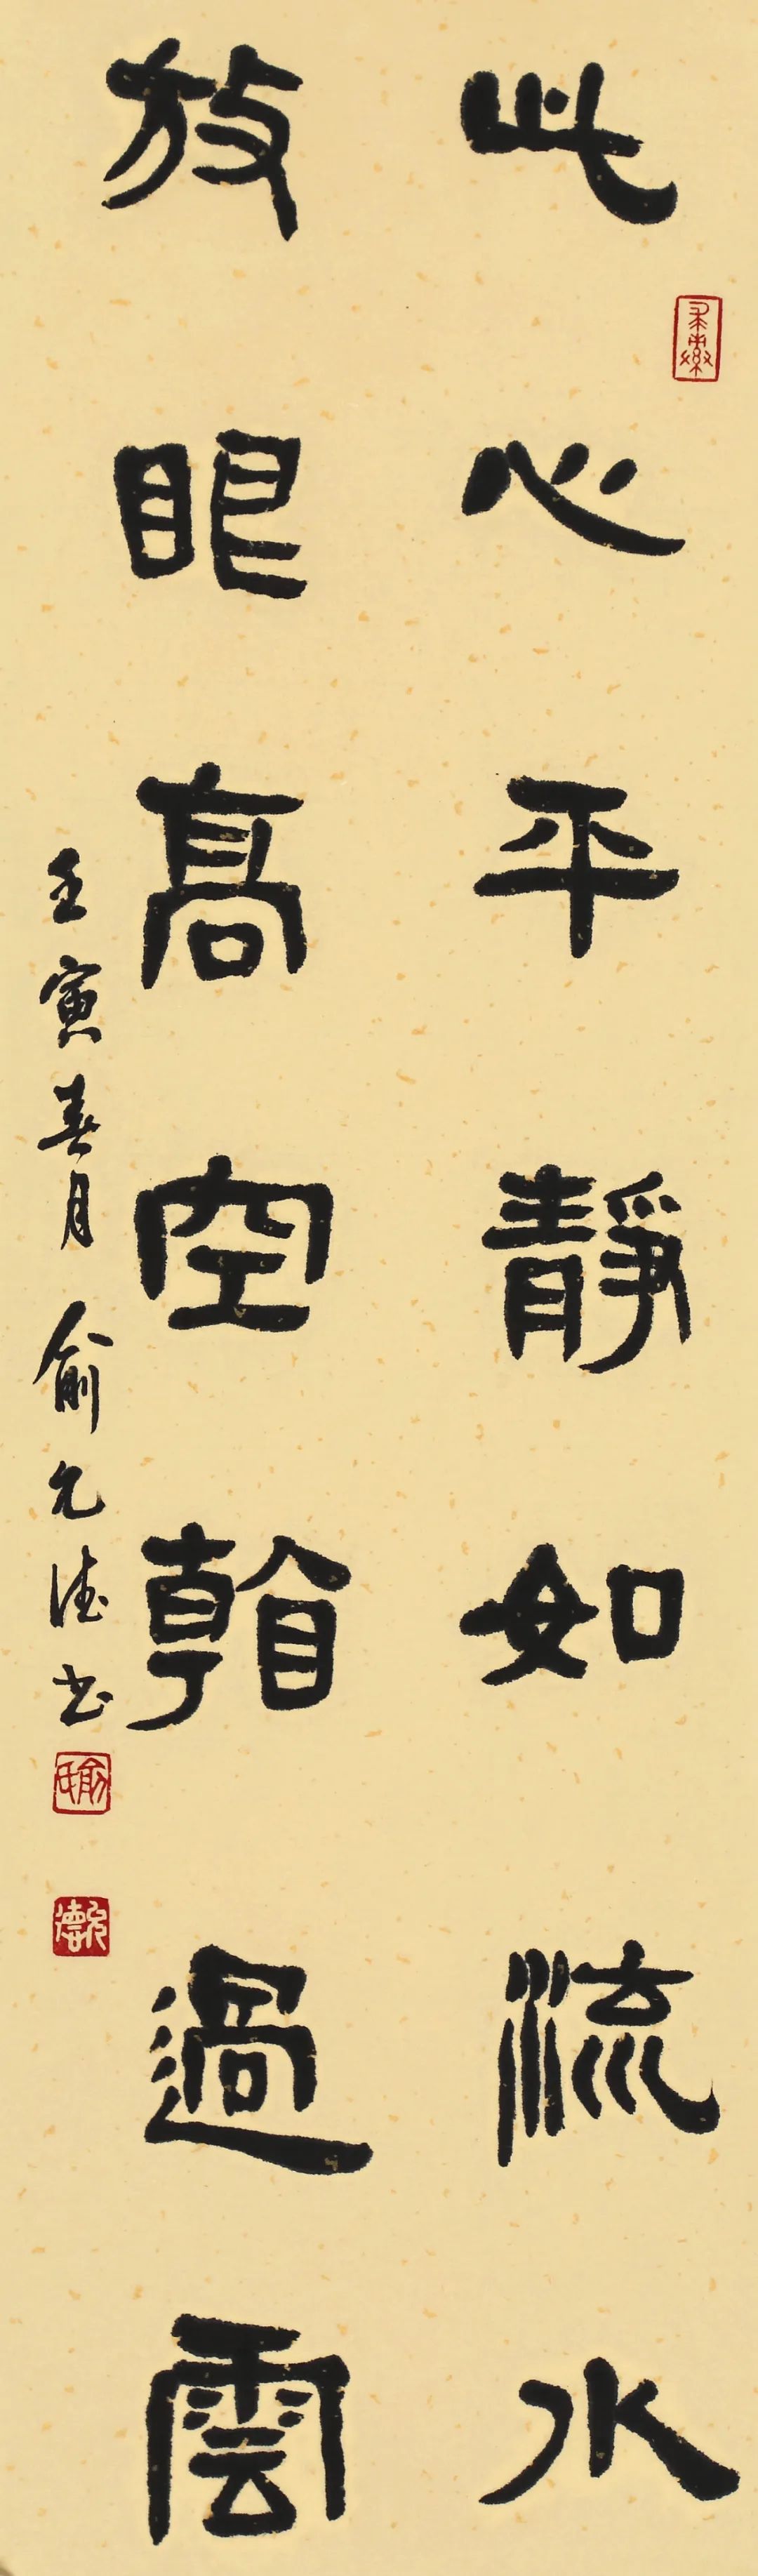 此心平靜如流水
放眼高空𥈠過雲
壬寅春月俞允德书